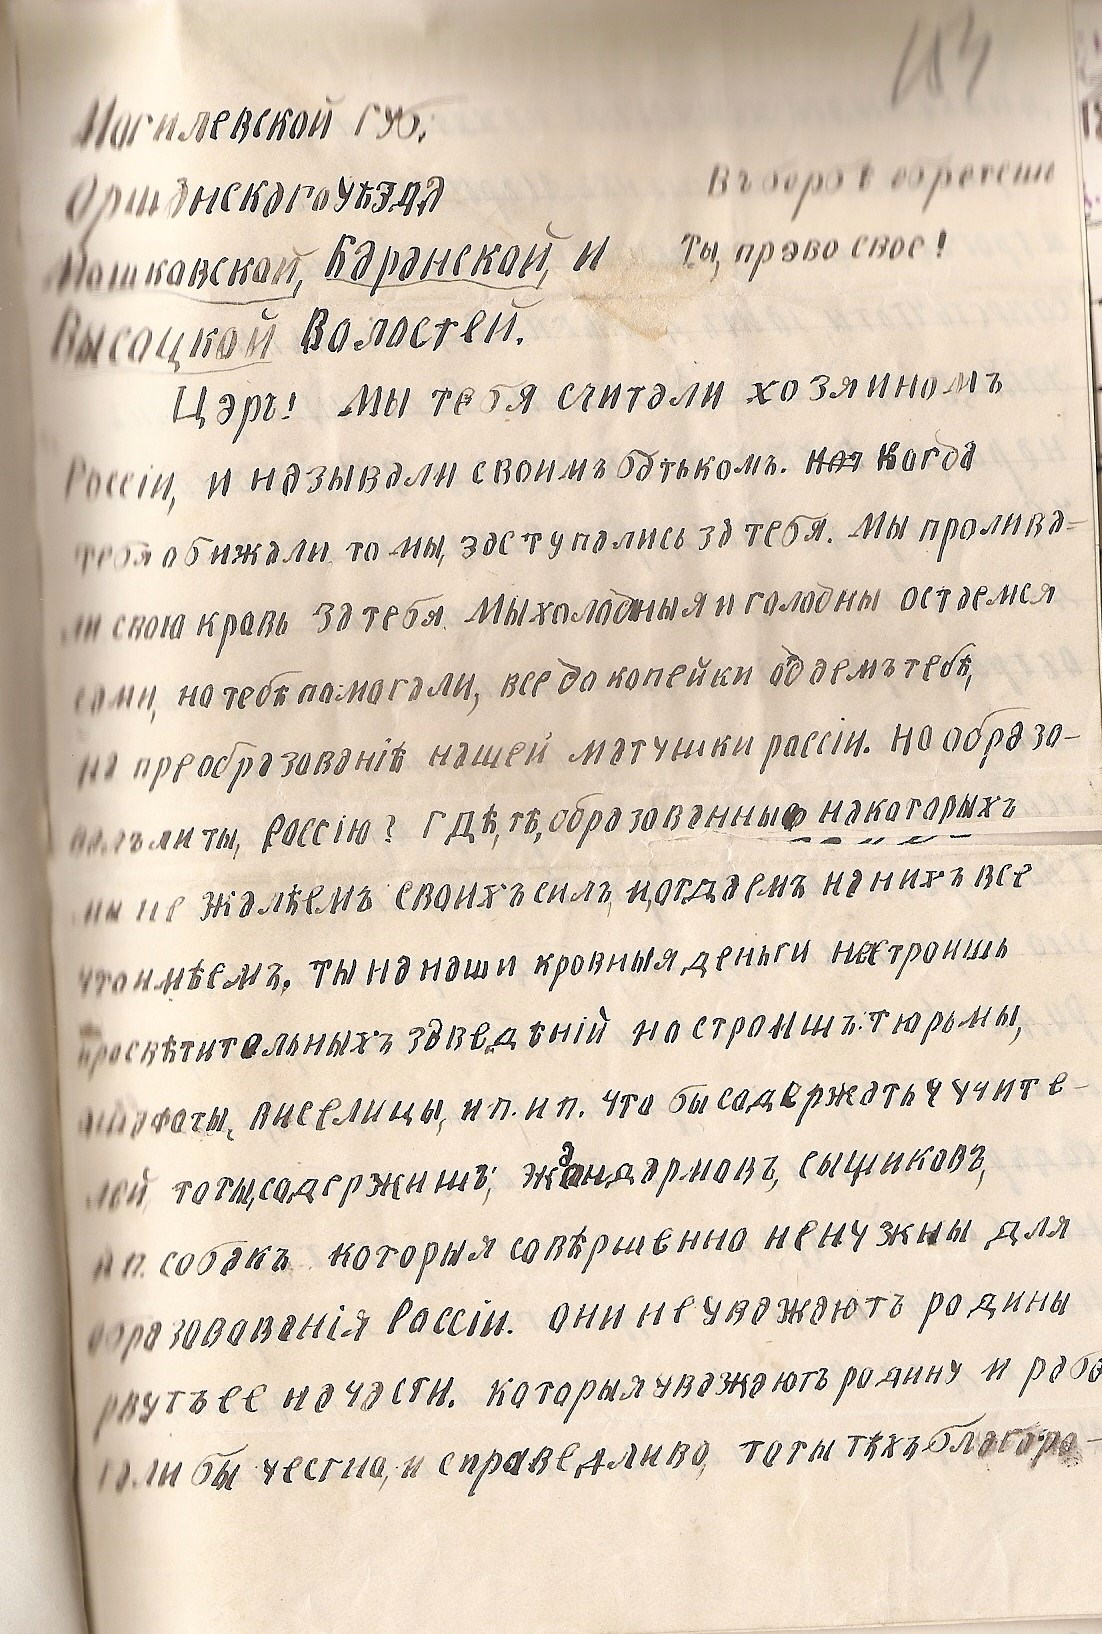 Могилевской Губ.
Оршанскаго уѣзда
Въ борбѣ обретеши
Машковской, Баранской, и
Ты, право свое!
Высоцкой Воластей.
Царъ! Мы тебя считали хозяиномъ
Россіи, и называли своимъ батькомъ. когда
тебя обижали то мы, заступались за тебя. Мы пролива-
ли свою кровь за тебя. Мы холодныя и голодны остаемся
сами, но тебѣ помогали, все до копейки оддаемъ тебѣ,
на преобразованіѣ нашей матушки россіи. Но образо-
валъ ли ты, Россію? Гдѣ, тѣ, образованные накаторыхъ
мы не жалѣемъ своихъ силъ, и, отдаемъ на нихъ все
что имѣемъ. Ты на наши кровныя деньги не строишь
просвѣтительныхъ заведѣній но строишъ. тюрьмы,
эшафоты, висѣлицы, и п. и п. Что бы содержать учите-
лей, то ты, содержишъ; жандармовъ, сыщиковъ,
и п. собакъ которыя совѣршенно ненужны для
образованія Россіи. Они не уважаютъ родины
рвутъ ее на части. которыя уважаютъ родину и рабо
тали бы чесгно, и справедливо, то ты тѣхъ благоро-